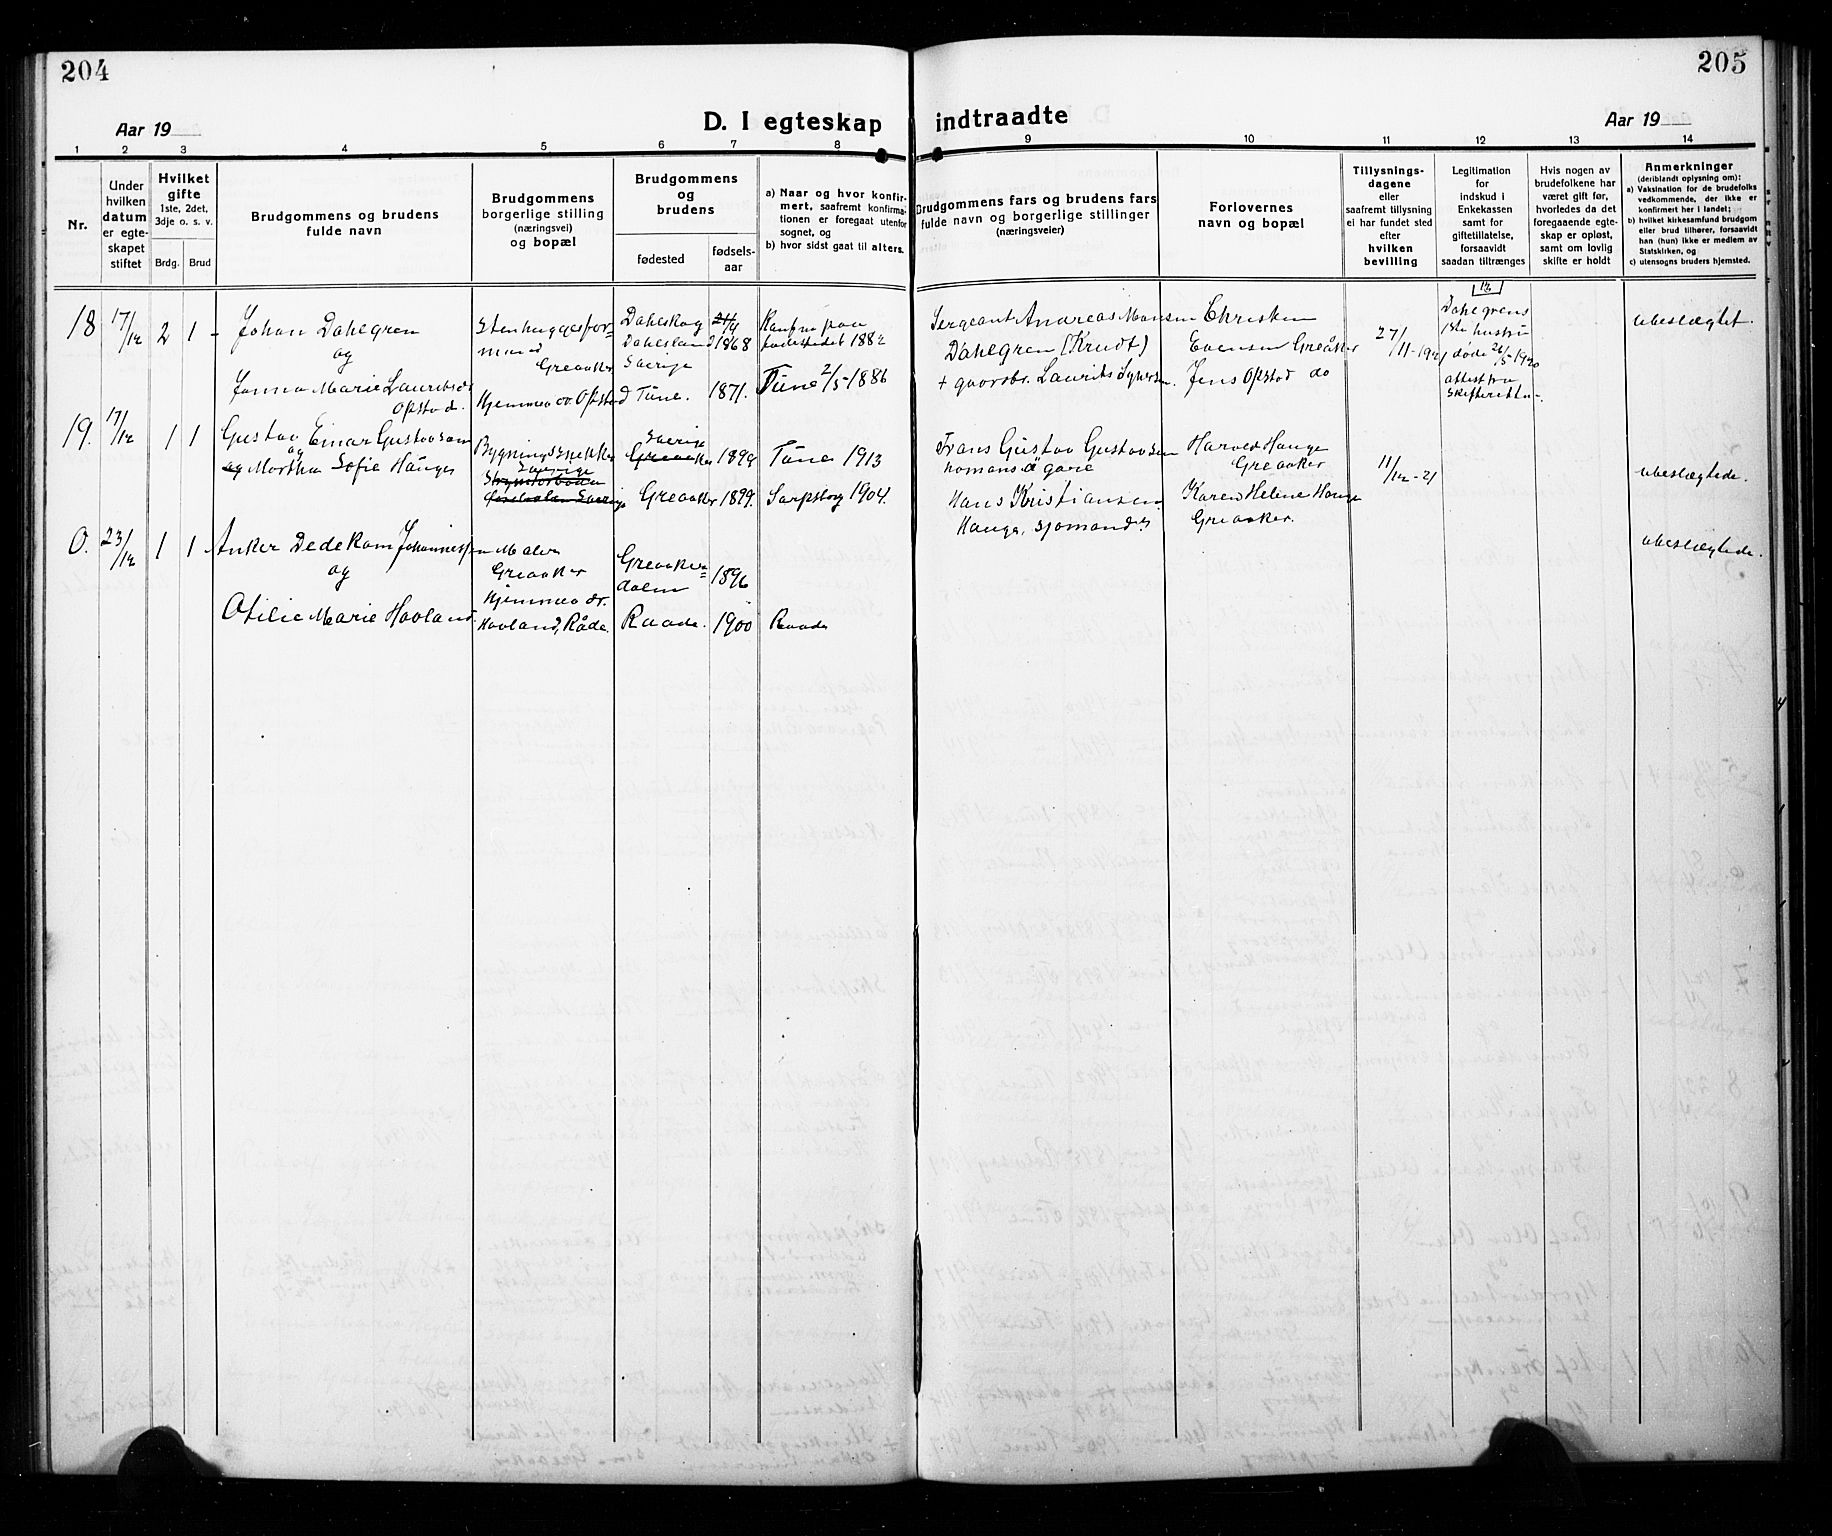 204
205
Aar 19
D. I egteskap
indtraadte
Aar 19
1 2 3 4 5 6 7 8
9 10 11 12 13 14
Nr.
Under
hvilken
datum
er egte-
skapet
stiftet
Hvilket
gifte
1ste, 2det,
3dje o. s. v.
Brdg.
Brud
Brudgommens og brudens
fulde navn
Brudgommens
borgerlige stilling
(næringsvei)
og bopæl
Brudgommens
og
brudens
fødested
fødsels-
aar
a) Naar og hvor konfir-
mert, saafremt konfirma-
tionen er foregaat utenfor
sognet, og
b) hvor sidst gaat til alters.
Brudgommens fars og brudens fars
fulde navn og borgerlige stillinger
(næringsveier)
Forlovernes
navn og bopæl
Tillysnings-
dagene
eller
saafremt tillysning
ei har fundet sted
efter
hvilken
bevilling
Legitimation
for
indskud i
Enkekassen
samt for
giftetillatelse,
forsaavidt
saadan tiltrænges
Hvis nogen av
brudefolkene har
været gift før,
hvorledes da det
foregaaende egte-
skap er opløst,
samt om lovlig
skifte er holdt
Anmerkninger
(deriblandt oplysning om):
a) Vaksination for de brudefolks
vedkommende, der ikke er
konfirmert her i landet;
b) hvilket kirkesamfund brudgom
eller brud tilhører, forsaavidt
han (hun) ikke er medlem av
Statskirken, og
c) utensogns bruders hjemsted.
18
17/12
2
1
Johan Dahlgren
og
Janna Marie Lauritsdr
Opstad.
Stenhuggerfor-
mand
Greaaker
Hjemmev dr Opstad
Dahlskog
Dahlsland
Sverige
Tune.
24/4
1868
1871.
Konf. paa
fødestedet 1882
Tune 2/5-1886
Sergeant Andreas Monsen
Dahlgren (Krudt)
+ gaardbr. Laurits
Christian
Evensen Greåker
Jens Opstad do
27/11-1921
12
Dahlgrens
1ste hustru
døde 26/5-1920
attest fra
skifteretten.
ubeslægtet.
19.
17/12
1
1
Gustav Einar Gustavsson
og
og Martha Sofie Hauge
Bygningssnekker
Sverige
Sverige
Greaaker
Greaaker
1899
1899.
Tune 1913
Sarpsborg 1904.
Frans Gustav Gustavsson
Hans Kristiansen
Hauge, sjømand
Harald Hauge
Greaaker
Karen Helene Hauge
Greaaker.
11/12-21
ubeslægtede.
0.
23/12
1
1
Anker Dedekam Johannessen
og
Otilie Marie Hovland
Maler
Greaaker
Hjemmev dr.
Hovland, Råde.
Greaaker=
dalen
Raade.
1896
1900
Raade
ubeslægtede.